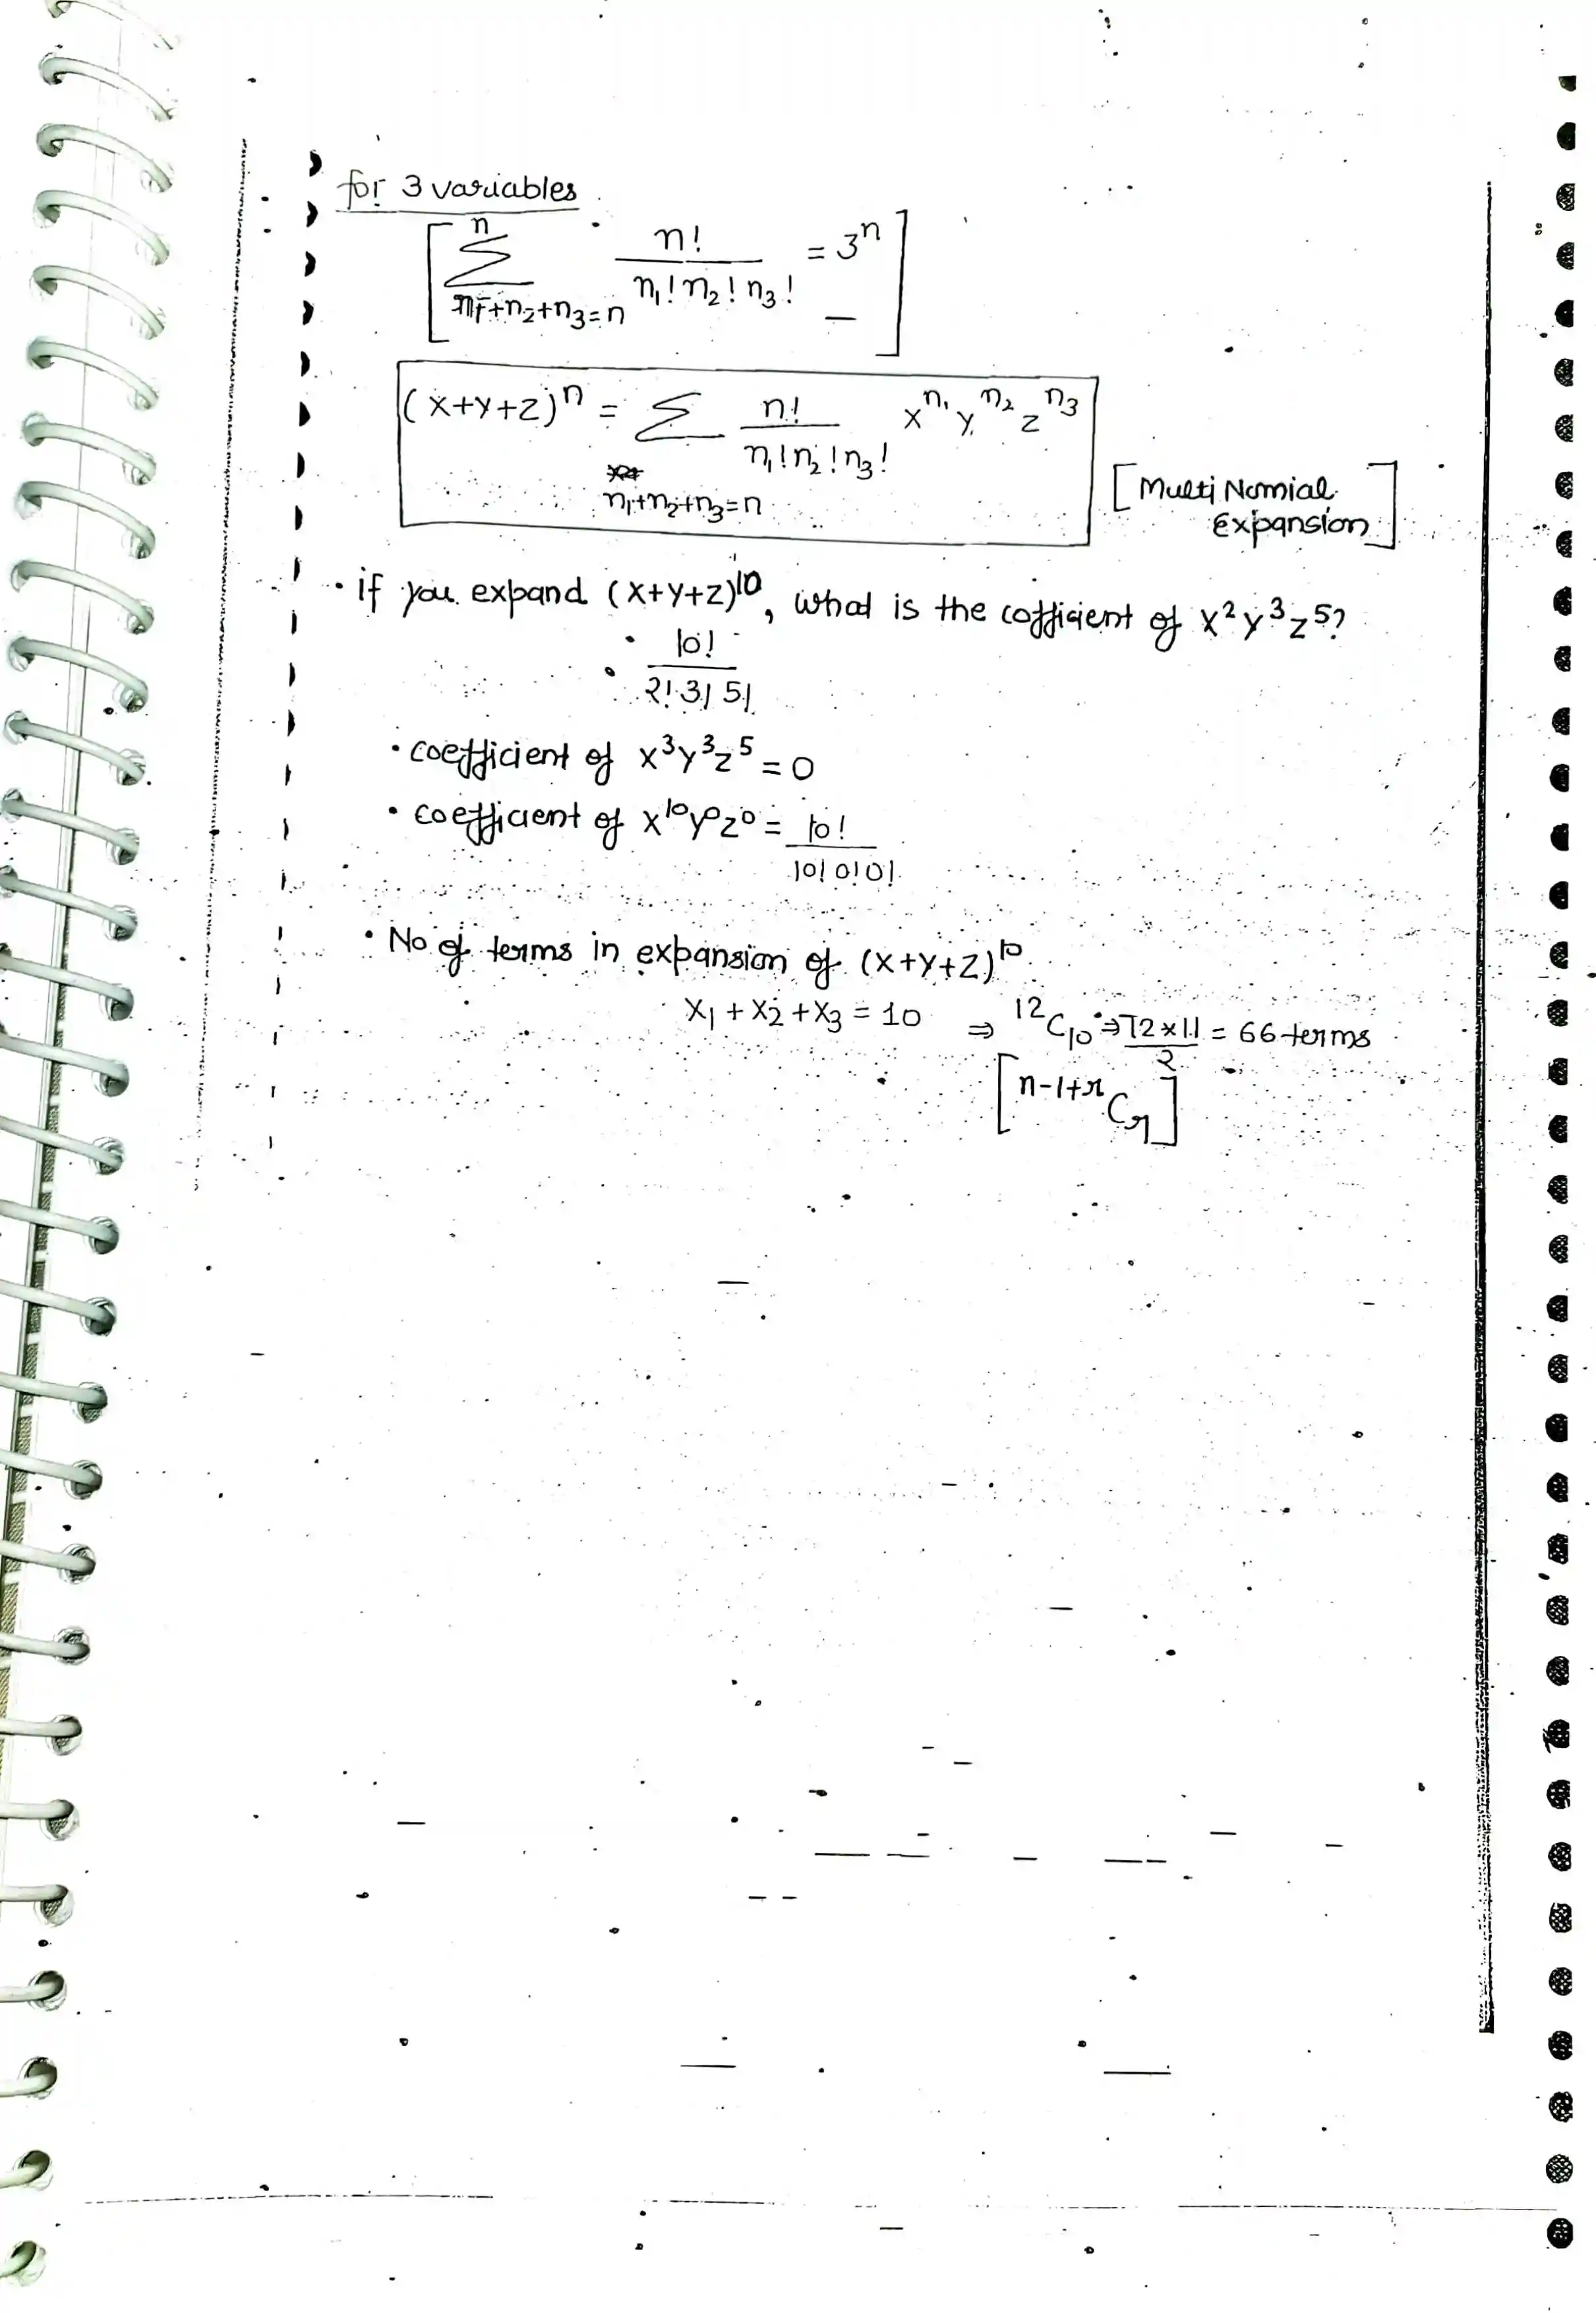 for 3 variables
[ n∑n₁+n₂+n₃=n n!/n₁!n₂!n₃! = 3ⁿ ]
(x+y+z)ⁿ = ∑ n!/n₁!n₂!n₃! xⁿ¹ yⁿ² zⁿ³
n₁+n₂+n₃=n
[Multi Nomial
Expansion]
• if you expand (x+y+z)¹⁰, what is the cofficient of x²y³z⁵?
10!/2! 3! 5!
• coefficient of x³y³z⁵ = 0
• coefficient of x¹⁰y⁰z⁰ = 10!/10! 0! 0!
• No of terms in expansion of (x+y+z)¹⁰
x₁ + x₂ + x₃ = 10 ⇒ ¹²C₁₀ ⇒ 12×11/2 = 66 terms
[ⁿ⁻¹⁺ʳCᵣ]